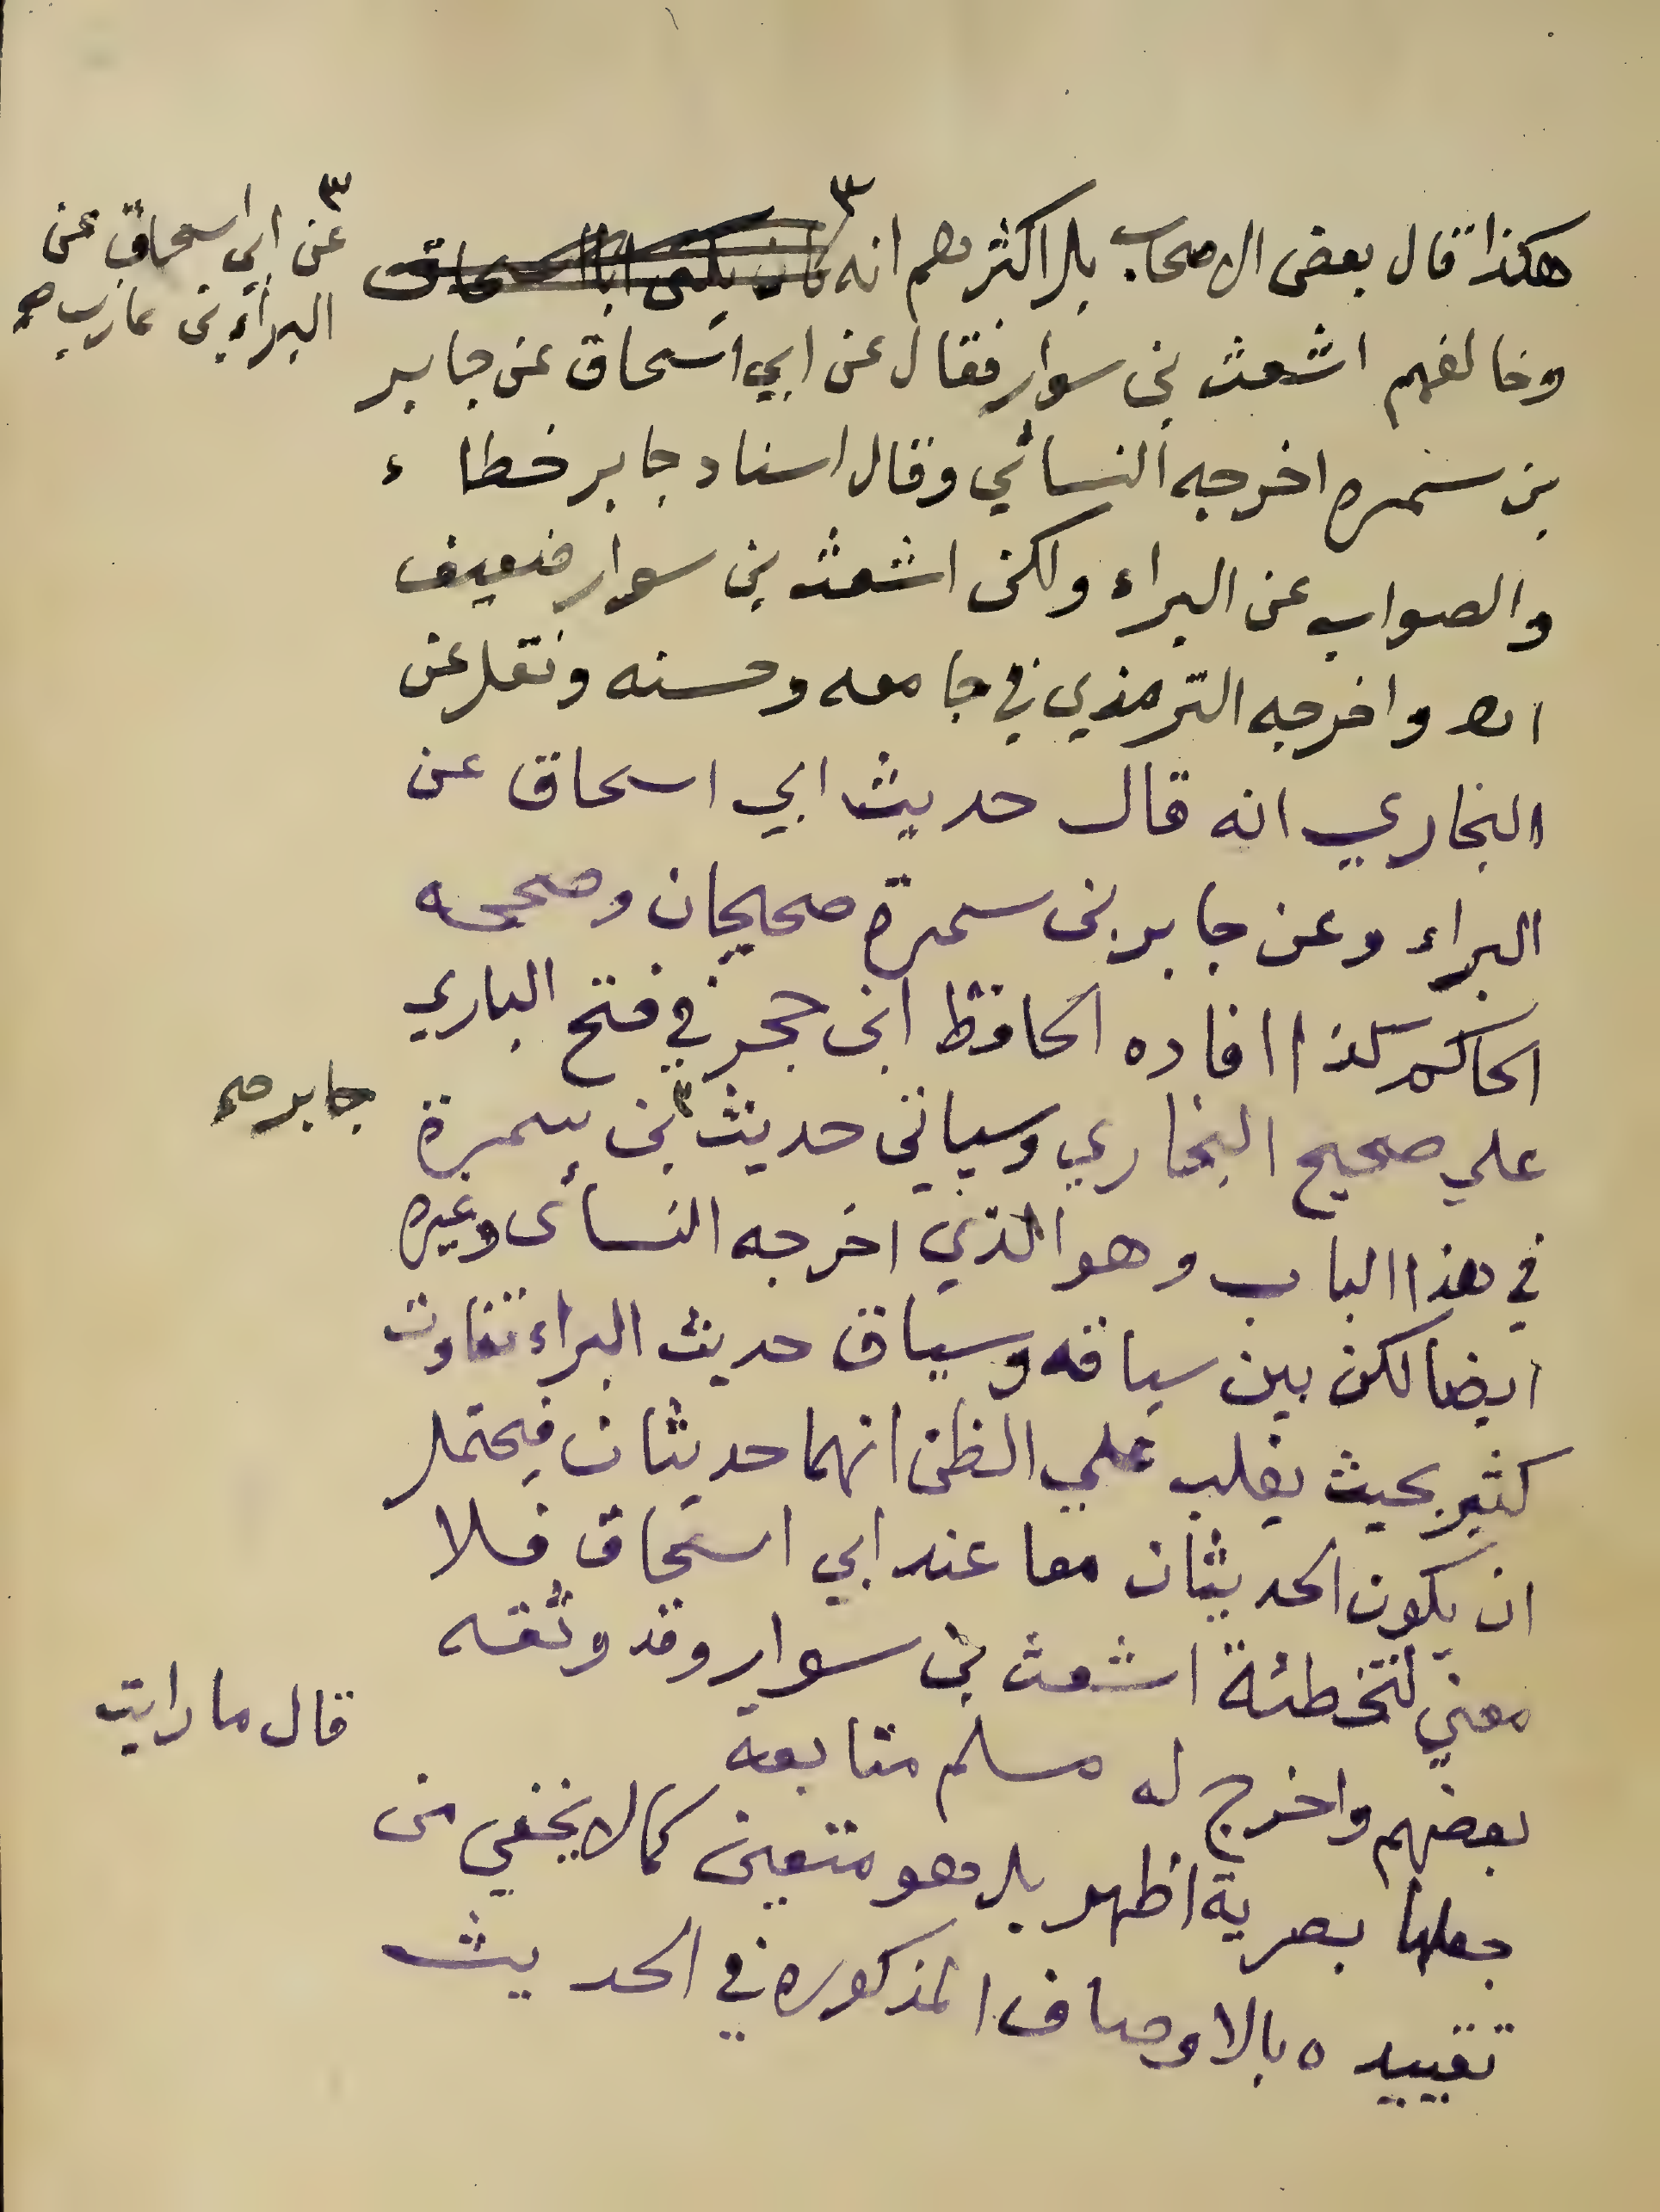 هكذا قال بعض الاصحاب بل اكثرهم انه ٣ كان يكنى ابا اسحاق
٣ عن ابي اسحاق عن
البراء بن عازب صح
وخالفهم اشعث بن سوار فقال عن ابي اسحاق عن جابر
بن سمره اخرجه النسائي وقال اسناد جابر خطاء
والصواب عن البراء ولكن اشعث بن سوار ضعيف
اه واخرجه الترمذي في جامعه وحسنه ونقل عن
البخاري انه قال حديث ابي اسحاق عن
البراء وعن جابر بن سمرة صحيحان وصححه
الحاكم كذا افاده الحافظ ابن حجر في فتح الباري
علي صحيح البخاري وسياتي حديث ٣ بن سمرة
جابر صح
في هذا الباب وهو الذي اخرجه النسائى وغيره
ايضا لكن بين سياقه وسياق حديث البراء تفاوت
كثير بحيث يغلب علي الظن انهما حديثان فيحتمل
ان يكون الحديثان معا عند ابي اسحاق فلا
معني لتخطئة اشعث بن سوار وقد وثقه
بعضهم واخرج له مسلم متابعة
قال ما رايت
جعلها بصرية اظهر بل هو متعين كما لا يخفي من
تقييده بالاوصاف المذكوره في الحديث